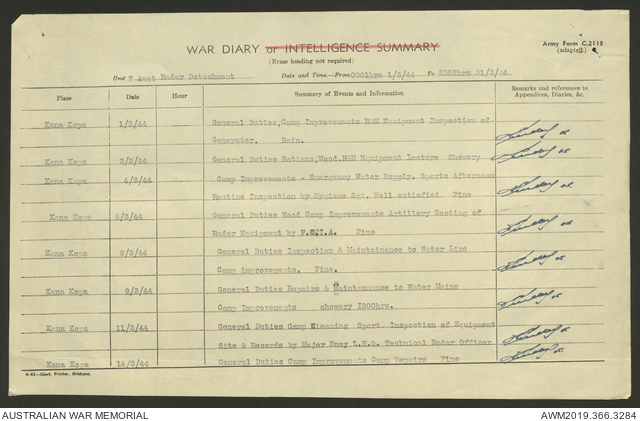 WAR DIARY or INTELLIGENCE SUMMARY
(Erase heading not required)
Army Form C.2118
(adapted.)
Unit 7 Aust Radar Detachment Date and Time.—From 0001hrs 1/3/44 To 2359hrs 31/3/44
Place Date Hour Summary of Events and Information Remarks and references to
Appendices, Diaries, &c.
Kana Kopa 1/3/44 General Duties,Camp Improvements R&M Equipment Inspection of
Generator. Rain.
Kana Kopa 3/3/44 General Duties Rations,Wood.R&M Equipment Lecture Showery
Kana Kopa 4/3/44 Camp Improvements - Emergency Water Supply. Sports Afternoon
Routine Inspection by Hygiene Sgt. Well satisfied. Fine
Kana Kopa 6/3/44 General Duties Wood Camp Improvements Artillery Testing of
Radar Equipment by Fine
Kana Kopa 8/3/44 General Duties Inspection & Maintoinance to Water Line
Camp improvements. Fine.
Kana Kopa 9/3/44 General Duties Repairs & Maintannance to Water Mains
Camp Improvements showery 1800hrs.
Kana Kopa 11/3/44 General Duties Camp Kleaning Sport. Inspection of Equipment
Site & Records by Major Huey L.H.Q. Technical Radar Officer
Kana Kopa 14/3/44 General Duties Camp Improvements Camp Repairs Fine
4-43—Govt. Printer, Brisbane.
AUSTRALIAN WAR MEMORIAL AWM2019.366.3284